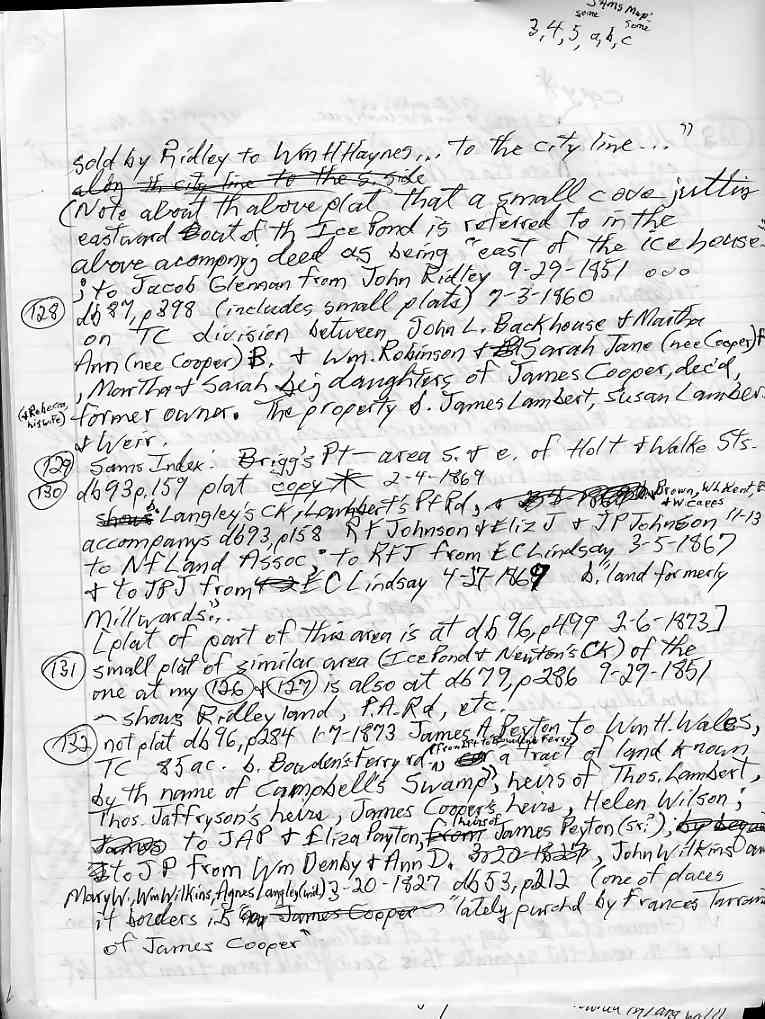 Sams Map:
some some
3, 4, 5, a, b, c
sold by Ridley to Wm H Haynes... to the city line..."
along th city line to the s. side
(Note about th above plat that a small cove jutting
eastward out of th Ice Pond is referred to in the
above acompnyg deed as being "east of the ice house"
; to Jacob Glennan from John Ridley 9-29-1851 ooo
(128) db 87, p398 (includes small plats) 7-3-1860
on TC division between John L. Backhouse & Martha
Ann (nee Cooper) B. & Wm. Robinson & Sarah Jane (nee Cooper) R
, Martha & Sarah big daughters of James Cooper, dec'd,
(& Rebecca, his wife) former owner. The property b. James Lambert, Susan Lambert
& Weir.
(129) Sams Index: Brigg's Pt — area s. & e. of Holt & Walke Sts.
(130) db 93 p.159 plat copy * 2-4-1869
shows b. Langley's CK, Lambert's Pt Rd, & Brown, Wh Kent, B
& W Capps
accompanys db93, p158 R F Johnson & Eliz J & JP Johnson 11-13
to Nf Land Assoc; to RFJ from EC Lindsay 3-5-1867
& to JPJ from EC Lindsay 4-27-1869 b. "land formerly
Millwards"..
[plat of part of this area is at db 96, p499 2-6-1873]
(131) small plat of similar area (Ice Pond & Newton's CK) of the
one at my (126) & (127) is also at db 79, p286 9-29-1851
— shows Ridley land, P.A. Rd, etc.
(132) not plat db 96, p284 1-7-1873 James A Peyton to Wm H. Wales,
TC 85 ac. b. Bowden's Ferry rd (from Nf to Bowdens Ferry) a tract of land known
by th name of Campbell's Swamp", heirs of Thos. Lambert,
Thos. Jaffryson's heirs, James Cooper's heirs, Helen Wilson;
to JAP & Eliza Payton, heirs of James Peyton (sr.?);
to JP from Wm Denby & Ann D. 3-20-1827, John Wilkins
Mary W., Wm Wilkins, Agnes Langley (wit) 3-20-1827 db 53, p212 (one of places
it borders is James Cooper "lately purchd by Frances
of James Cooper"